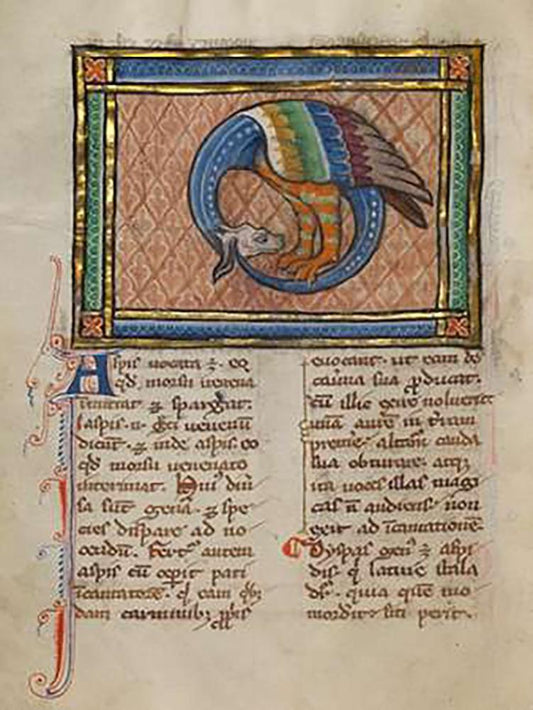 Aspis uocata ÷ eo
qđ morsu uenena
īmittat ⁊ spargat:
ſaspis· n̄· Gͨi uenenū
dicūt· ⁊ inde aspis eo
qđ morsu uenenato
interimat· Huiꝰ diū
sa sūt genā· ⁊ spe
cies dispare ad no
cendū· Fert᷑ autem
aspis cū cepit pati
īcantatorē· q̇ eam qͥb;
dam carminib; ꝓpͥis
euocant· ut eam de
cauna sua ꝓducat·
cū illa exire noluerit
unā aurē in t̄ram
premit· altām cauda
sua obturat· atq;
ita uoces illas magi
cas n̄ audiens· non
exit ad īcantationē·
Dyspas genꝰ ÷ aspi
dis· q̇ latine situla
dr̄· quia quē mo
morderit· siti perit·